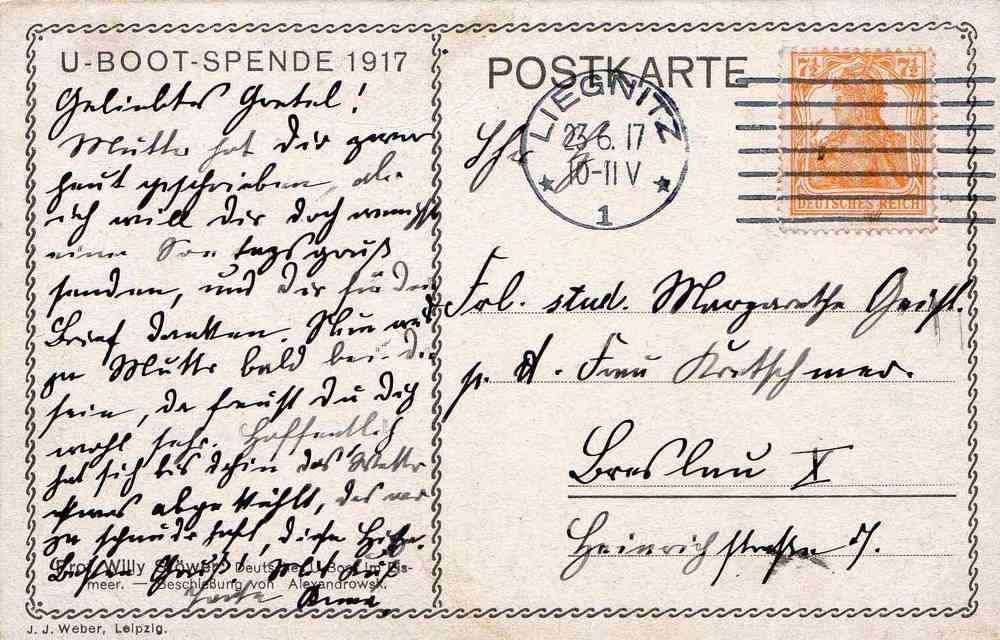 U-BOOT-SPENDE 1917
Geliebtes Gretel!
Mutter hat Dir zwar
heut geschrieben, aber
ich will Dir doch
einen Sonntagsgruß
senden, und Dir für den
Brief danken. Nun wird
ja Mutter bald bei Dir
sein, da freust Du Dich
wohl sehr. Hoffentlich
hat sich bis dahin das Wetter
etwas abgekühlt, das war
ja schauderhaft, diese Hitze.
Besten Gruß!
Anna.
Prof. Willy Stöwer: Deutsches U-Boot im Eis-
meer. — Beschießung von Alexandrowsk.
J. J. Weber, Leipzig.
POSTKARTE
LIEGNITZ
23.6.17
10-11 V
1
7½ 7½
DEUTSCHES REICH
Frl. stud. Margarethe
p. A. Frau Kretschmer.
Breslau X
Heinrichstraße